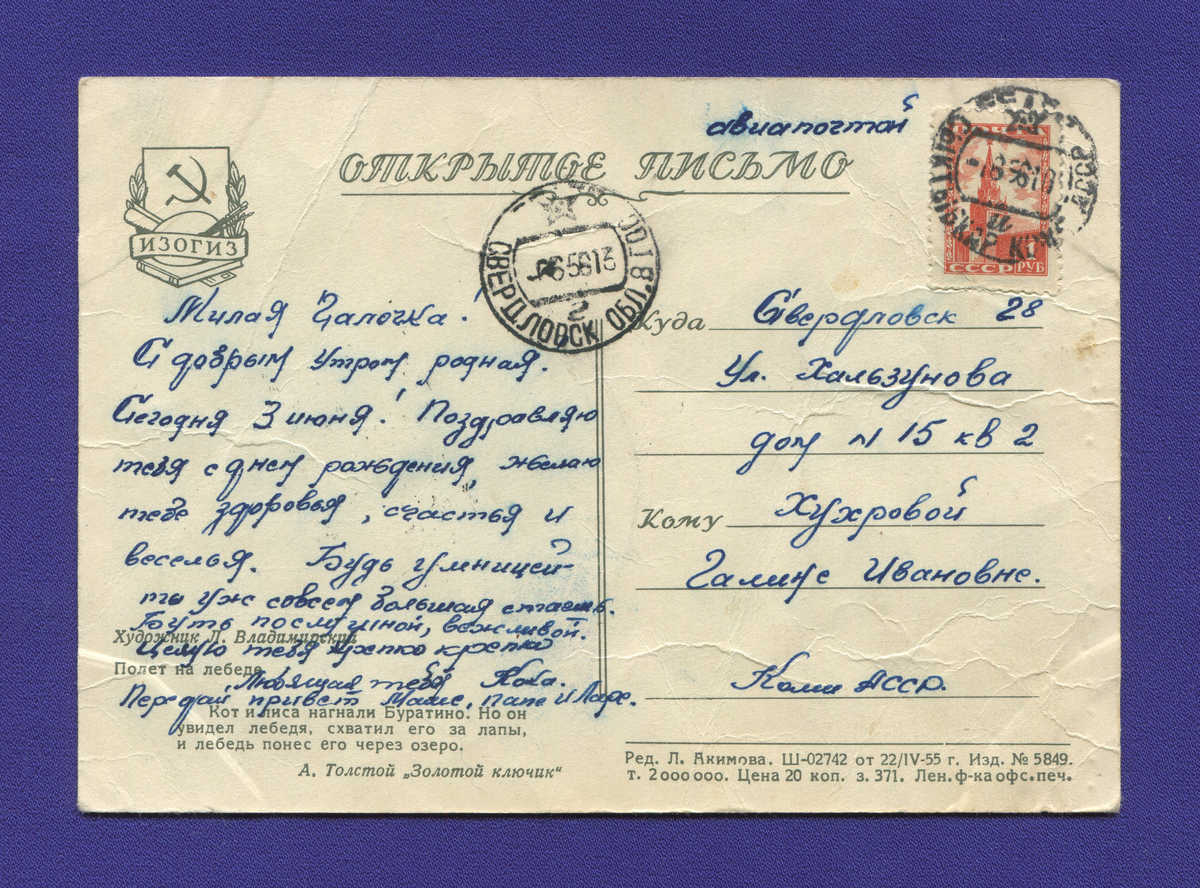 авиапочтой
ОТКРЫТОЕ ПИСЬМО
ИЗОГИЗ
СССР 1 РУБ
СВЕРДЛОВСК ОБЛ.
2
Милая Галочка!
С добрым утром родная.
Сегодня 3 июня! Поздравляю
тебя с днем рождения, желаю
тебе здоровья, счастья и
веселья. Будь умницей
ты уж совсем большая стаешь.
Будь послушной, вежливой.
Целую тебя крепко крепко
Любящая тебя
Передай привет Маме, папе и Ларе.
Куда Свердловск 28
Ул. Хальзунова
дом N 15 кв 2
Кому Хухровой
Галине Ивановне.
Коми АССР.
Художник Л. Владимирский
Полет на лебеде.
Кот и лиса нагнали Буратино. Но он
увидел лебедя, схватил его за лапы,
и лебедь понес его через озеро.
А. Толстой „Золотой ключик“
Ред. Л. Акимова. Ш-02742 от 22/IV-55 г. Изд. № 5849.
т. 2 000 000. Цена 20 коп. з. 371. Лен. ф-ка офс. печ.